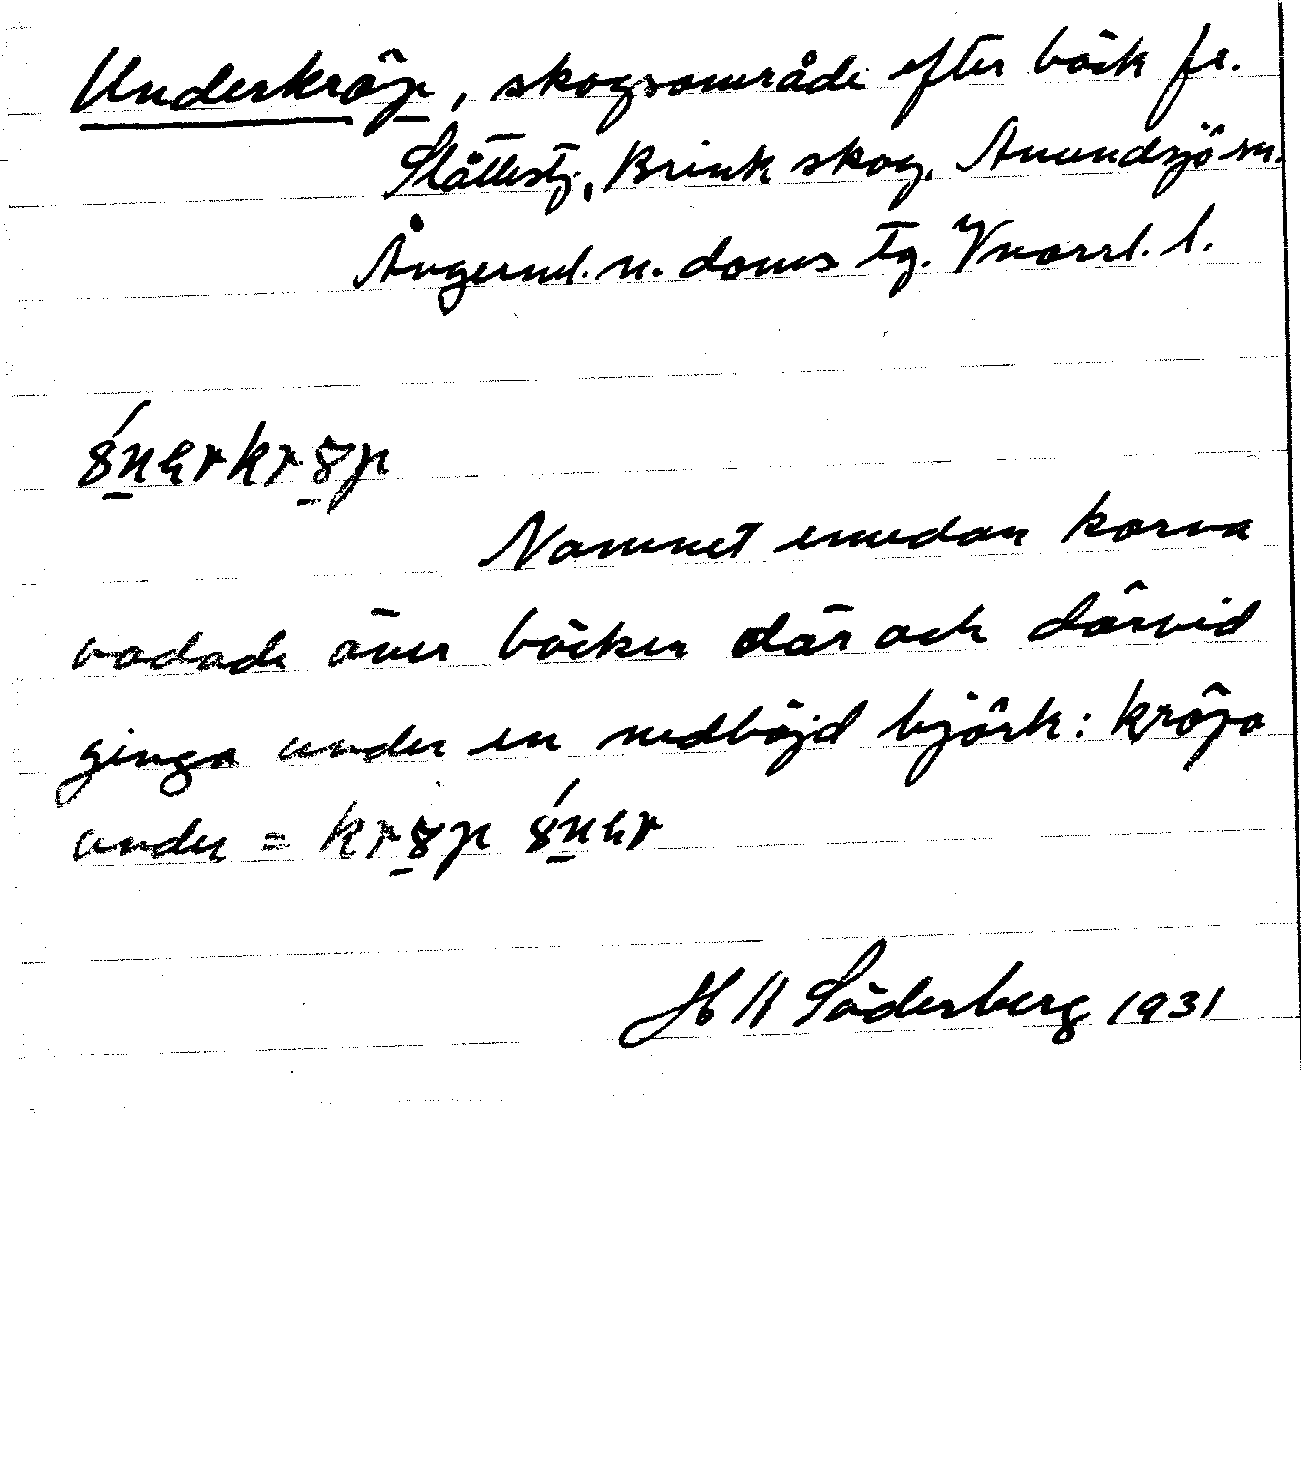 Underkröp, skogsområde efter bäck fr.
Slåttestj., Brink skog. Anundsjö sn.
Ångerml. n. doms tg. Vnorrl. l.
Namnet emedan korna
vadade över bäcken där och därvid
gingo under en nedböjd björk: kröpo
under =
H A Söderberg 1931